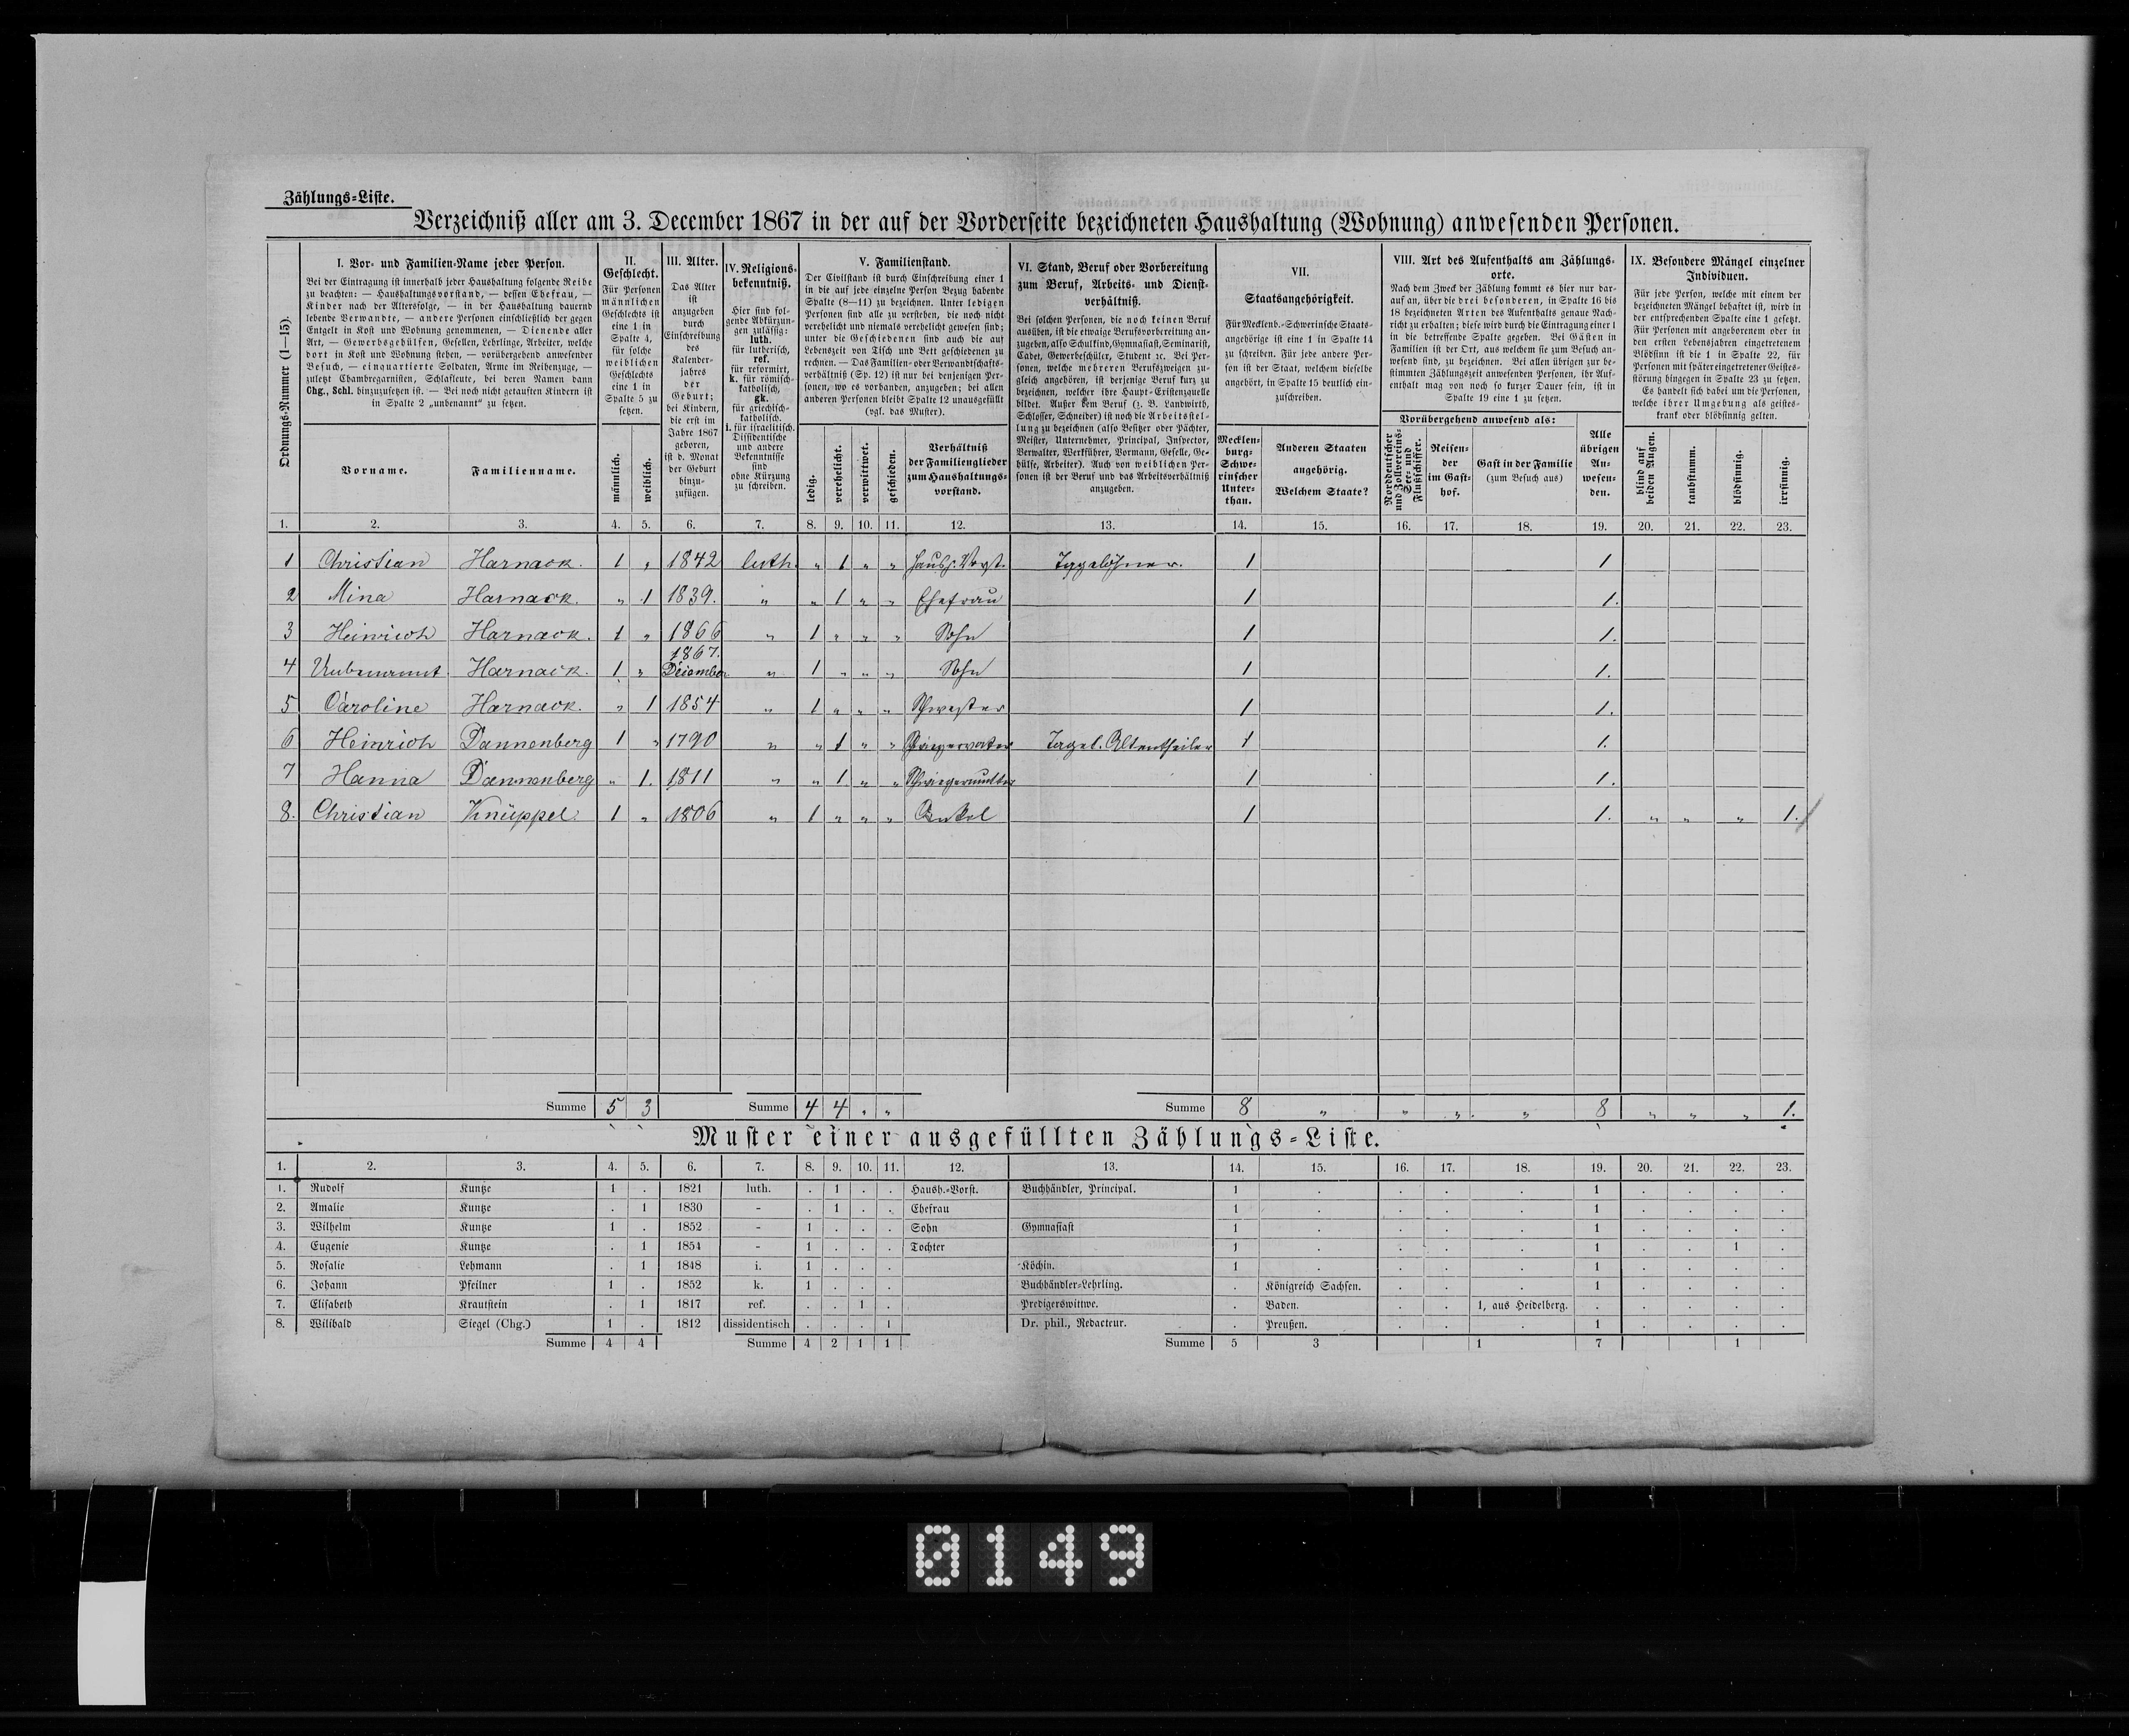 Zählungs-Liste.
Verzeichniß aller am 3. December 1867 in der auf der Vorderseite bezeichneten Haushaltung (Wohnung) anwesenden Personen.
Ordnungs-Nummer (1—15).
I. Vor- und Familien-Name jeder Person.
Bei der Eintragung ist innerhalb jeder Haushaltung folgende Reihe
zu beachten: — Haushaltungsvorstand, — dessen Ehefrau, —
Kinder nach der Altersfolge, — in der Haushaltung dauernd
lebende Verwandte, — andere Personen einschließlich der gegen
Entgelt in Kost und Wohnung genommenen, — Dienende aller
Art, — Gewerbsgehülfen, Gesellen, Lehrlinge, Arbeiter, welche
dort in Kost und Wohnung stehen, — vorübergehend anwesender
Besuch, — einquartierte Soldaten, Arme im Reihenzuge, —
zuletzt Chambregarnisten, Schlafleute, bei deren Namen dann
Chg., Schl. hinzuzusetzen ist. — Bei noch nicht getauften Kindern ist
in Spalte 2 „unbenannt" zu setzen.
Vorname.
Familienname.
II.
Geschlecht.
Für Personen
männlichen
Geschlechts ist
eine 1 in
Spalte 4,
für solche
weiblichen
Geschlechts
eine 1 in
Spalte 5 zu
setzen.
männlich.
weiblich.
III. Alter.
Das Alter
ist
anzugeben
durch
Einschreibung
des
Kalender-
jahres
der
Geburt;
bei Kindern,
die erst im
Jahre 1867
geboren,
ist d. Monat
der Geburt
hinzu-
zufügen.
IV. Religions-
bekenntniß.
Hier sind fol-
gende Abkürzun-
gen zulässig:
luth.
für lutherisch,
ref.
für reformirt,
k. für römisch-
katholisch,
gk.
für griechisch-
katholisch,
i. für israelitisch.
Dissidentische
und andere
Bekenntnisse
sind
ohne Kürzung
zu schreiben.
V. Familienstand.
Der Civilstand ist durch Einschreibung einer 1
in die auf jede einzelne Person Bezug habende
Spalte (8—11) zu bezeichnen. Unter ledigen
Personen sind alle zu verstehen, die noch nicht
verehelicht und niemals verehelicht gewesen sind;
unter die Geschiedenen sind auch die auf
Lebenszeit von Tisch und Bett geschiedenen zu
rechnen. — Das Familien- oder Verwandtschafts-
verhältniß (Sp. 12) ist nur bei denjenigen Per-
sonen, wo es vorhanden, anzugeben; bei allen
anderen Personen bleibt Spalte 12 unausgefüllt
(vgl. das Muster).
ledig.
verehelicht.
verwittwet.
geschieden.
Verhältniß
der Familienglieder
zum Haushaltungs-
vorstand.
VI. Stand, Beruf oder Vorbereitung
zum Beruf, Arbeits- und Dienst-
verhältniß.
Bei solchen Personen, die noch keinen Beruf
ausüben, ist die etwaige Berufsvorbereitung an-
zugeben, also Schulkind, Gymnasiast, Seminarist,
Cadet, Gewerbeschüler, Student ꝛc. Bei Per-
sonen, welche mehreren Berufszweigen zu-
gleich angehören, ist derjenige Beruf kurz zu
bezeichnen, welcher ihre Haupt-Existenzquelle
bildet. Außer dem Beruf (z. B. Landwirth,
Schlosser, Schneider) ist noch die Arbeitsstel-
lung zu bezeichnen (also Besitzer oder Pächter,
Meister, Unternehmer, Principal, Inspector,
Verwalter, Werkführer, Vormann, Geselle, Ge-
hülfe, Arbeiter). Auch von weiblichen Per-
sonen ist der Beruf und das Arbeitsverhältniß
anzugeben.
VII.
Staatsangehörigkeit.
Für Mecklenb.-Schwerinsche Staats-
angehörige ist eine 1 in Spalte 14
zu schreiben. Für jede andere Per-
son ist der Staat, welchem dieselbe
angehört, in Spalte 15 deutlich ein-
zuschreiben.
Mecklen-
burg-
Schwe-
rinscher
Unter-
than.
Anderen Staaten
angehörig.
Welchem Staate?
VIII. Art des Aufenthalts am Zählungs-
orte.
Nach dem Zweck der Zählung kommt es hier nur dar-
auf an, über die drei besonderen, in Spalte 16 bis
18 bezeichneten Arten des Aufenthalts genaue Nach-
richt zu erhalten; diese wird durch die Eintragung einer 1
in die betreffende Spalte gegeben. Bei Gästen in
Familien ist der Ort, aus welchem sie zum Besuch an-
wesend sind, zu bezeichnen. Bei allen übrigen zur be-
stimmten Zählungszeit anwesenden Personen, ihr Auf-
enthalt mag von noch so kurzer Dauer sein, ist in
Spalte 19 eine 1 zu setzen.
Vorübergehend anwesend als:
Norddeutscher
und Zollvereins-
See- und
Flußschiffer.
Reisen-
der
im Gast-
hof.
Gast in der Familie
(zum Besuch aus)
Alle
übrigen
An-
wesen-
den.
IX. Besondere Mängel einzelner
Individuen.
Für jede Person, welche mit einem der
bezeichneten Mängel behaftet ist, wird in
der entsprechenden Spalte eine 1 gesetzt.
Für Personen mit angeborenem oder in
den ersten Lebensjahren eingetretenem
Blödsinn ist die 1 in Spalte 22, für
Personen mit später eingetretener Geistes-
störung hingegen in Spalte 23 zu setzen.
Es handelt sich dabei um die Personen,
welche ihrer Umgebung als geistes-
krank oder blödsinnig gelten.
blind auf
beiden Augen.
taubstumm.
blödsinnig.
irrsinnig.
1. 2. 3. 4. 5. 6. 7. 8. 9. 10. 11. 12. 13. 14. 15. 16. 17. 18. 19. 20. 21. 22. 23.
1 Christian Harnack. 1 „ 1842 luth. „ 1 „ „ Haush. Vorst. Tagelöhner. 1 1
2 Mina Harnack. „ 1 1839. „ „ 1 „ „ Ehefrau 1 1.
3 Heinrich Harnack. 1 „ 1866 „ 1 „ „ „ Sohn 1 1.
4 Unbenannt. Harnack. 1 „ 1867. December „ 1 „ „ „ Sohn 1 1.
5 Caroline Harnack. „ 1 1854 „ 1 „ „ „ Schwester 1 1.
6 Heinrich Dannenberg 1 „ 1790 „ „ 1 „ „ Schwiegervater Tagel. Altentheiler 1 1.
7 Hanna Dannenberg „ 1. 1811 „ „ 1. „ „ Schwiegermutter 1 1.
8. Christian Knüppel 1 „ 1806 „ 1 „ „ „ Onkel 1 1. „ „ „ 1.
Summe 5 3 Summe 4 4 „ „ Summe 8 „ „ „ „ 8 „ „ „ 1.
Muster einer ausgefüllten Zählungs-Liste.
1. 2. 3. 4. 5. 6. 7. 8. 9. 10. 11. 12. 13. 14. 15. 16. 17. 18. 19. 20. 21. 22. 23.
1. Rudolf Kuntze 1 . 1821 luth. . 1 . . Haush.-Vorst. Buchhändler, Principal. 1 . . . . 1 . . . .
2. Amalie Kuntze . 1 1830 - . 1 . . Ehefrau 1 . . . . 1 . . . .
3. Wilhelm Kuntze 1 . 1852 - 1 . . . Sohn Gymnasiast 1 . . . . 1 . . . .
4. Eugenie Kuntze . 1 1854 - 1 . . . Tochter 1 . . . . 1 . . 1 .
5. Rosalie Lehmann . 1 1848 i. 1 . . . Köchin. 1 . . . . 1 . . . .
6. Johann Pfeilner 1 . 1852 k. 1 . . . Buchhändler-Lehrling. . Königreich Sachsen. . . . 1 . . . .
7. Elisabeth Krautstein . 1 1817 ref. . . 1 . Predigerswittwe. . Baden. . . 1, aus Heidelberg. . . . . .
8. Wilibald Siegel (Chg.) 1 . 1812 dissidentisch . . . 1 Dr. phil., Redacteur. . Preußen. . . . 1 . . . .
Summe 4 4 Summe 4 2 1 1 Summe 5 3 1 7 1
0149